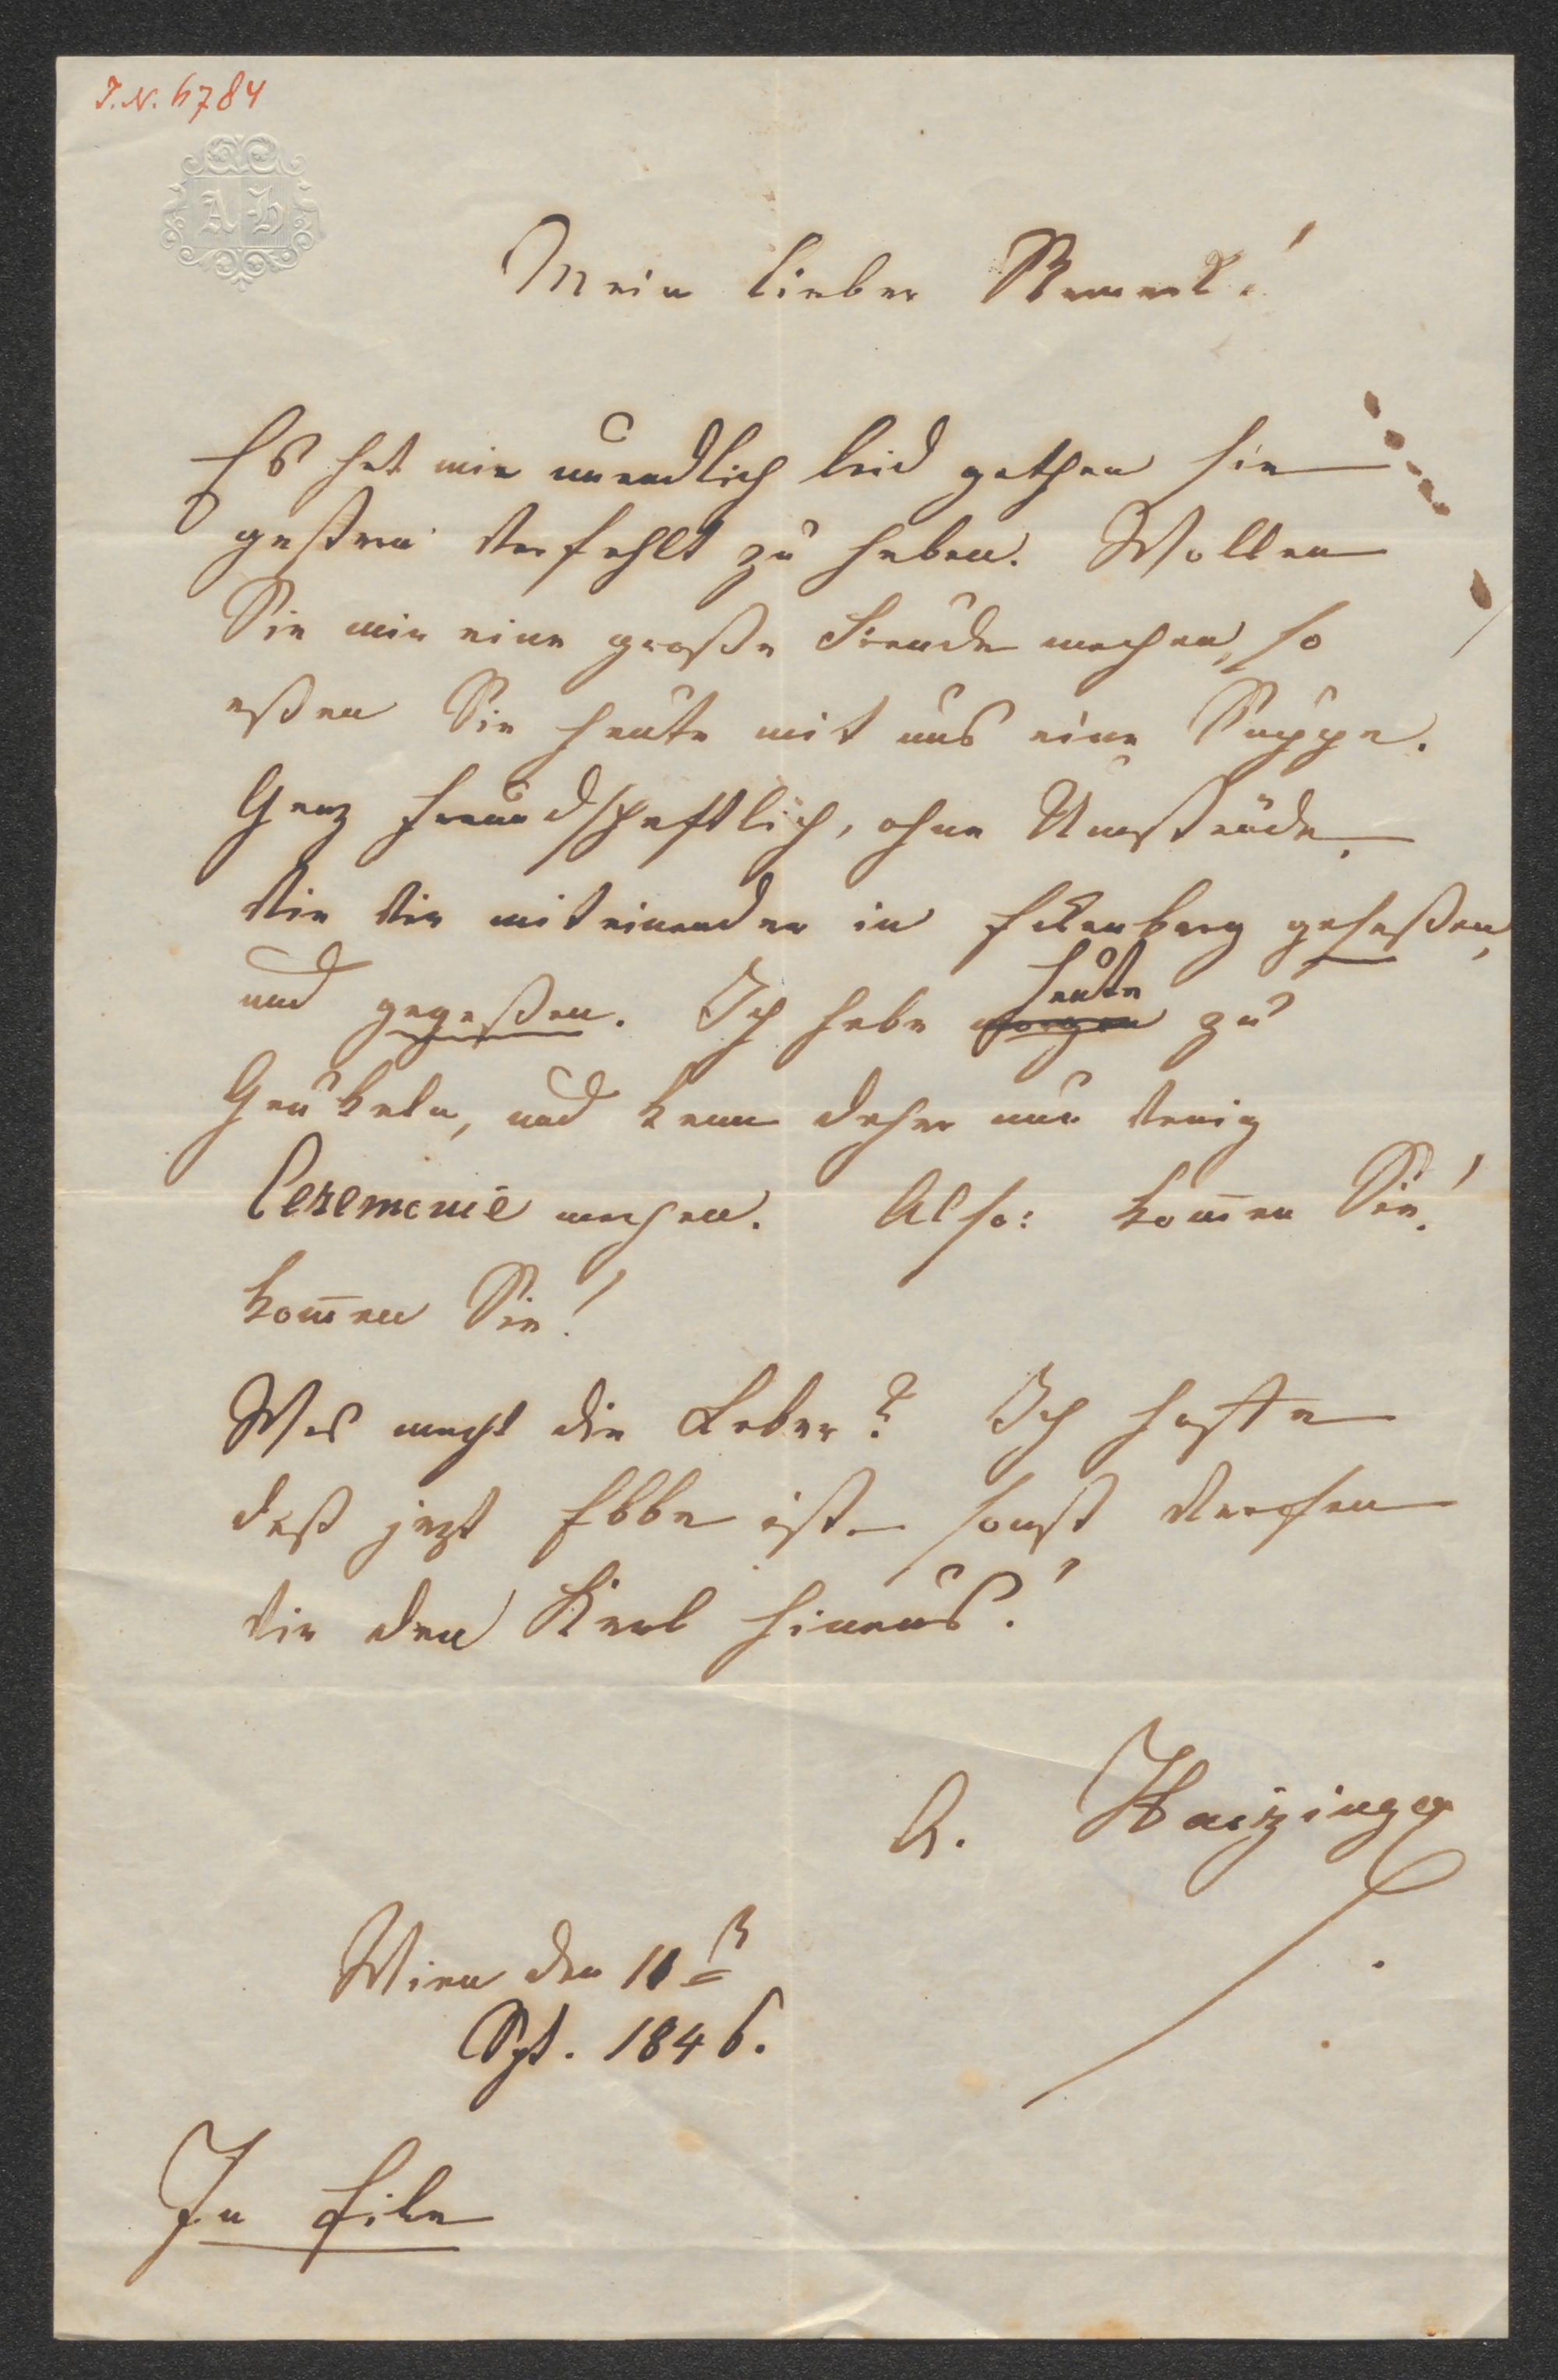 I.N. 6784
A H
Mein lieber
Es hat mir unendlich leid gethan sie
gestern verfehlt zu haben. Wollen
Sie mir eine große Freude machen, so
eßen Sie heute mit uns eine Suppe.
Ganz freundschaftlich, ohne Umstände,
wie wir miteinander in geseßen,
und gegeßen. Ich habe heute zu
Gaukeln, und kann daher nur wenig
Ceremonie machen. Also: kom̅en Sie!
kom̅en Sie!
Was macht die Leber? Ich hoffe
daß jezt Ebbe ist – sonst werfen
wir den Kerl hinaus!
A. Haizinger
Wien den
Spt. 1846.
In Eile